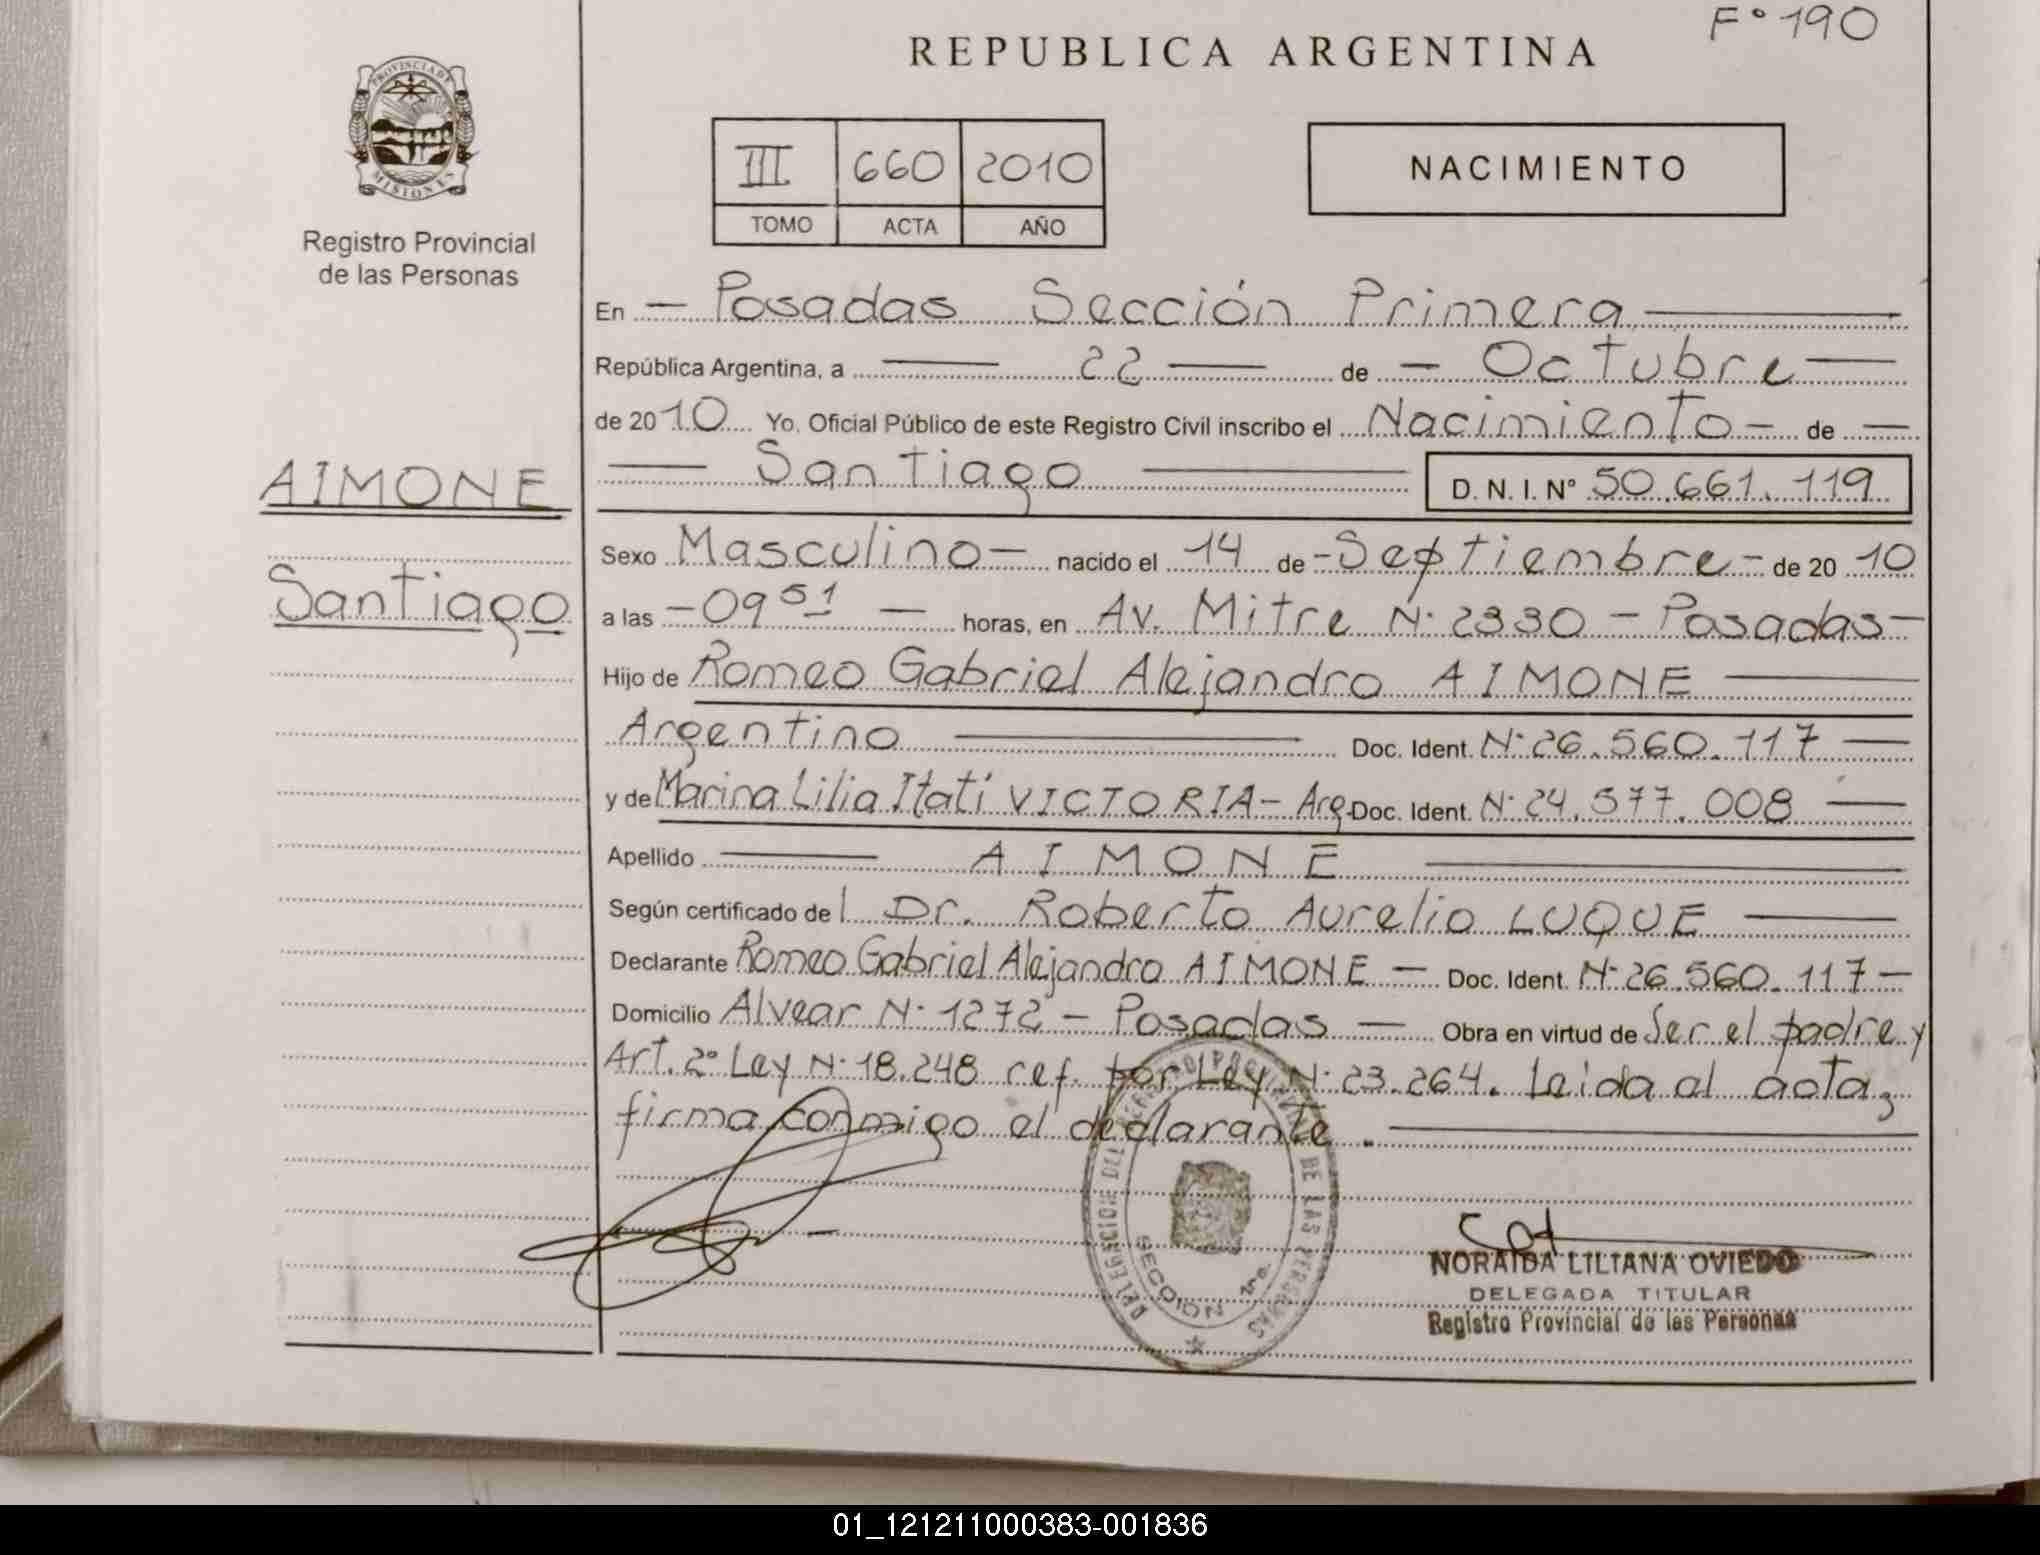 F° 190
REPUBLICA ARGENTINA
PROVINCIA DE MISIONES
Registro Provincial
de las Personas
III 660 2010
TOMO ACTA AÑO
NACIMIENTO
En — Posadas Sección Primera —
República Argentina, a — 22 — de — Octubre —
de 2010 Yo, Oficial Público de este Registro Civil inscribo el Nacimiento — de —
— Santiago — D. N. I. N° 50.661.119
AIMONE
Santiago
Sexo Masculino — nacido el 14 de - Septiembre - de 20 10
a las - 09 51 — horas, en Av. Mitre N· 2330 - Posadas -
Hijo de Romeo Gabriel Alejandro AIMONE —
Argentino — Doc. Ident. N· 26.560.117 —
y de Marina Lilia Itatí VICTORIA - Arg. Doc. Ident. N· 24.577.008 —
Apellido — AIMONE —
Según certificado del Dr. Roberto Aurelio LUQUE —
Declarante Romeo Gabriel Alejandro AIMONE — Doc. Ident. N· 26.560.117 —
Domicilio Alvear N· 1272 - Posadas — Obra en virtud de Ser el padre y
Art. 2° Ley N· 18.248 ref. por Ley N· 23.264. Leida al acta,
firma conmigo el declarante. —
DELEGACION DEL REGISTRO PROVINCIAL DE LAS PERSONAS
SECCION 1ra.
NORAIDA LILIANA OVIEDO
DELEGADA TITULAR
Registro Provincial de las Personas
01_121211000383-001836